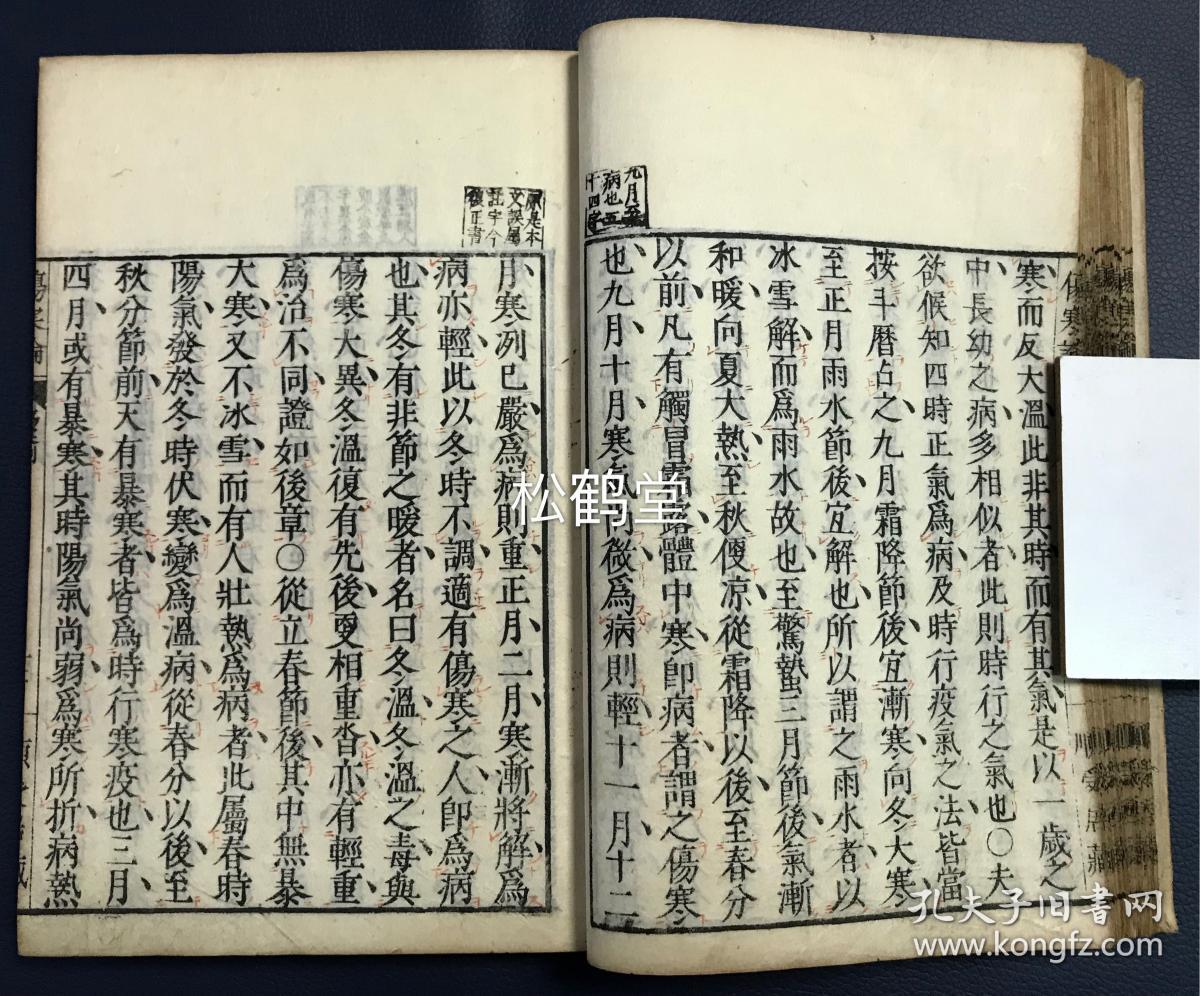 九月至
病也五
十四字
寒而反大溫此非其時而有其氣是以一歲之
中長幼之病多相似者此則時行之氣也〇夫
欲候知四時正氣爲病及時行疫氣之法皆當
按斗曆占之九月霜降節後宜漸寒向冬大寒
至正月雨水節後宜解也所以謂之雨水者以
冰雪解而爲雨水故也至驚蟄二月節後氣漸
和暖向夏大熱至秋便凉從霜降以後至春分
以前凡有觸冒霜露體中寒即病者謂之傷寒
也九月十月寒氣尚微爲病則輕十一月十二
原是本
文誤屬
註字今
復正書
月寒冽已嚴爲病則重正月二月寒漸將解爲
病亦輕此以冬時不調適有傷寒之人即爲病
也其冬有非節之暖者名曰冬溫冬溫之毒與
傷寒大異冬溫復有先後更相重沓亦有輕重
爲治不同證如後章〇從立春節後其中無暴
大寒又不冰雪而有人壯熱爲病者此屬春時
陽氣發於冬時伏寒變爲溫病從春分以後至
秋分節前天有暴寒者皆爲時行寒疫也三月
四月或有暴寒其時陽氣尚弱爲寒所折病熱
松鹤堂
孔夫子旧书网
www.kongfz.com